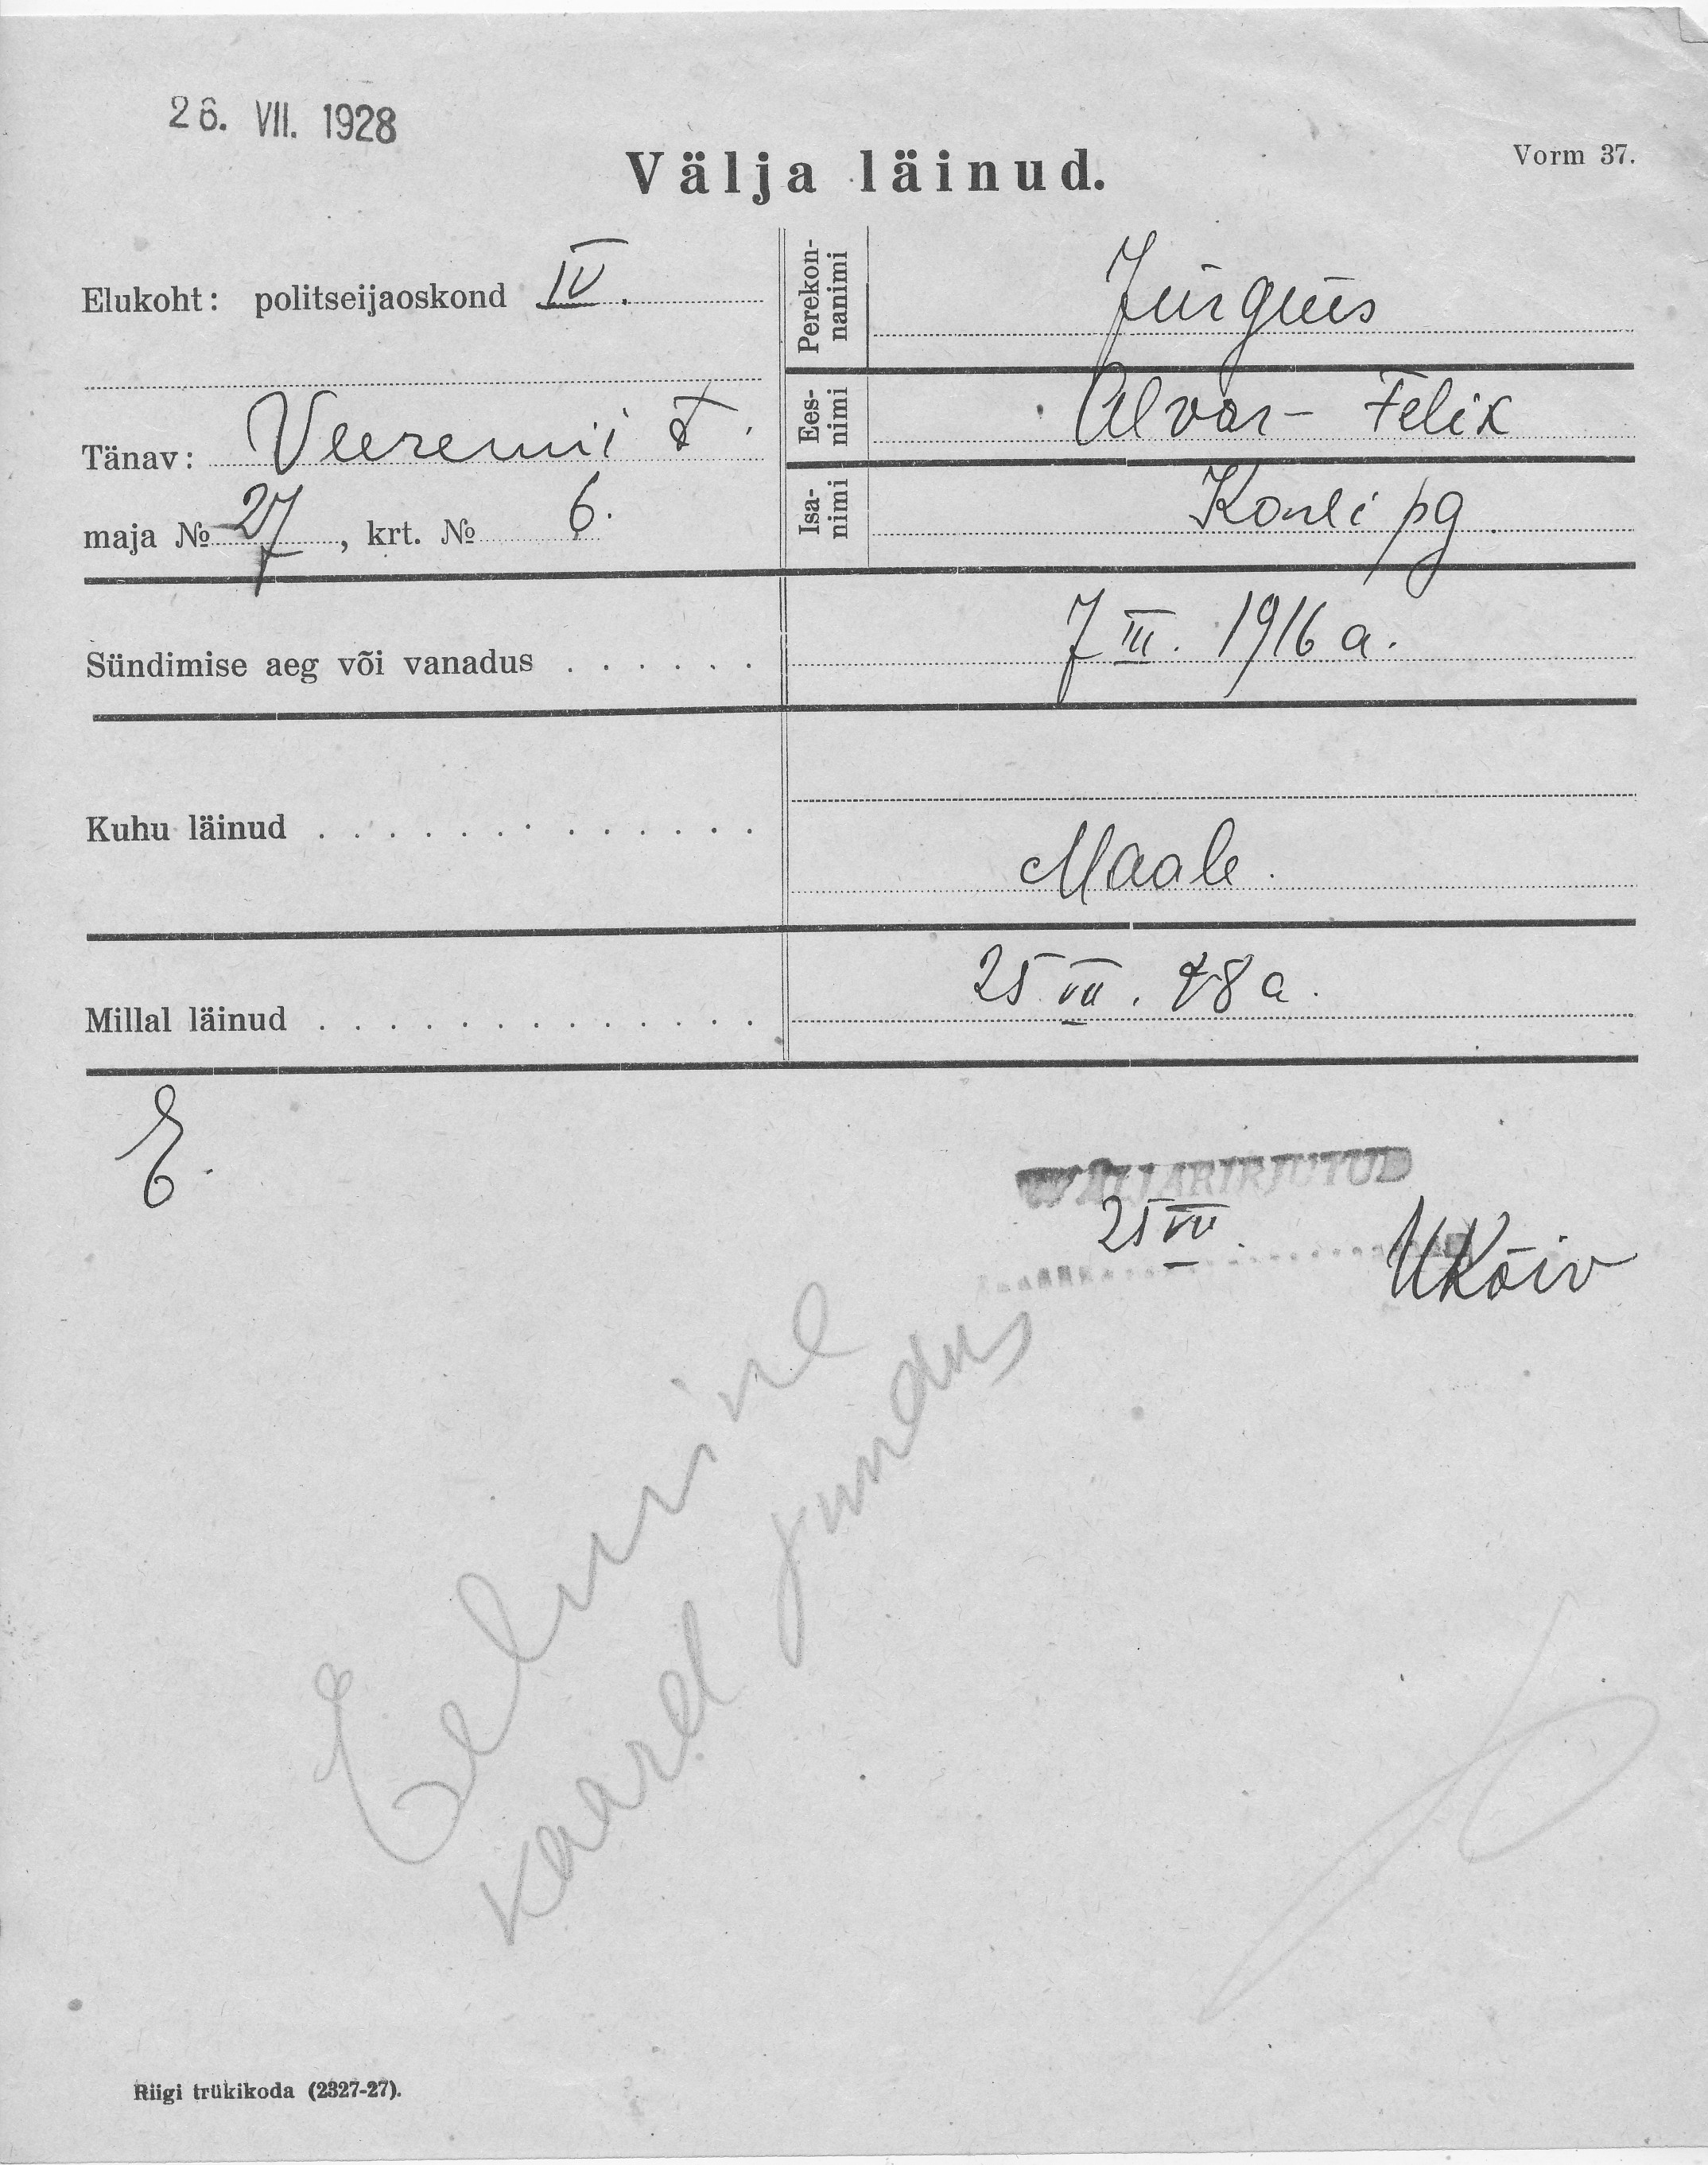 26. VII. 1928
Välja läinud.
Vorm 37.
Elukoht: politseijaoskond IV.
Tänav: Veerenni t.
maja № 27, krt. № 6.
Perekon-
nanimi
Jürgens
Ees-
nimi
Alvar- Felix
Isa-
nimi
Karli pg.
Sündimise aeg või vanadus . . . . . .
7 III. 1916 a.
Kuhu läinud . . . . . . . . . . . . .
Maale.
Millal läinud . . . . . . . . . . . . .
25 VII. 28 a.
E.
WÄLJAKIRJUTUD
25 VII.
Kõiv
Eelmine
kaard puudus
Riigi trükikoda (2327-27).